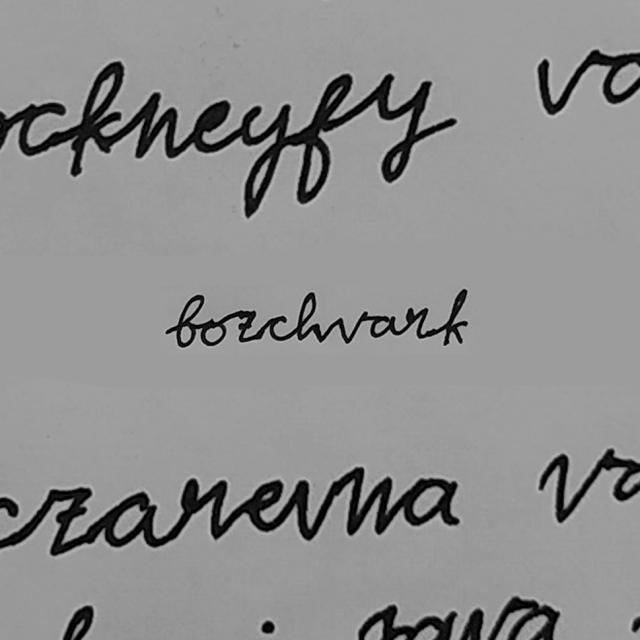 ockneyfy vo
bozchvark
czarevna va